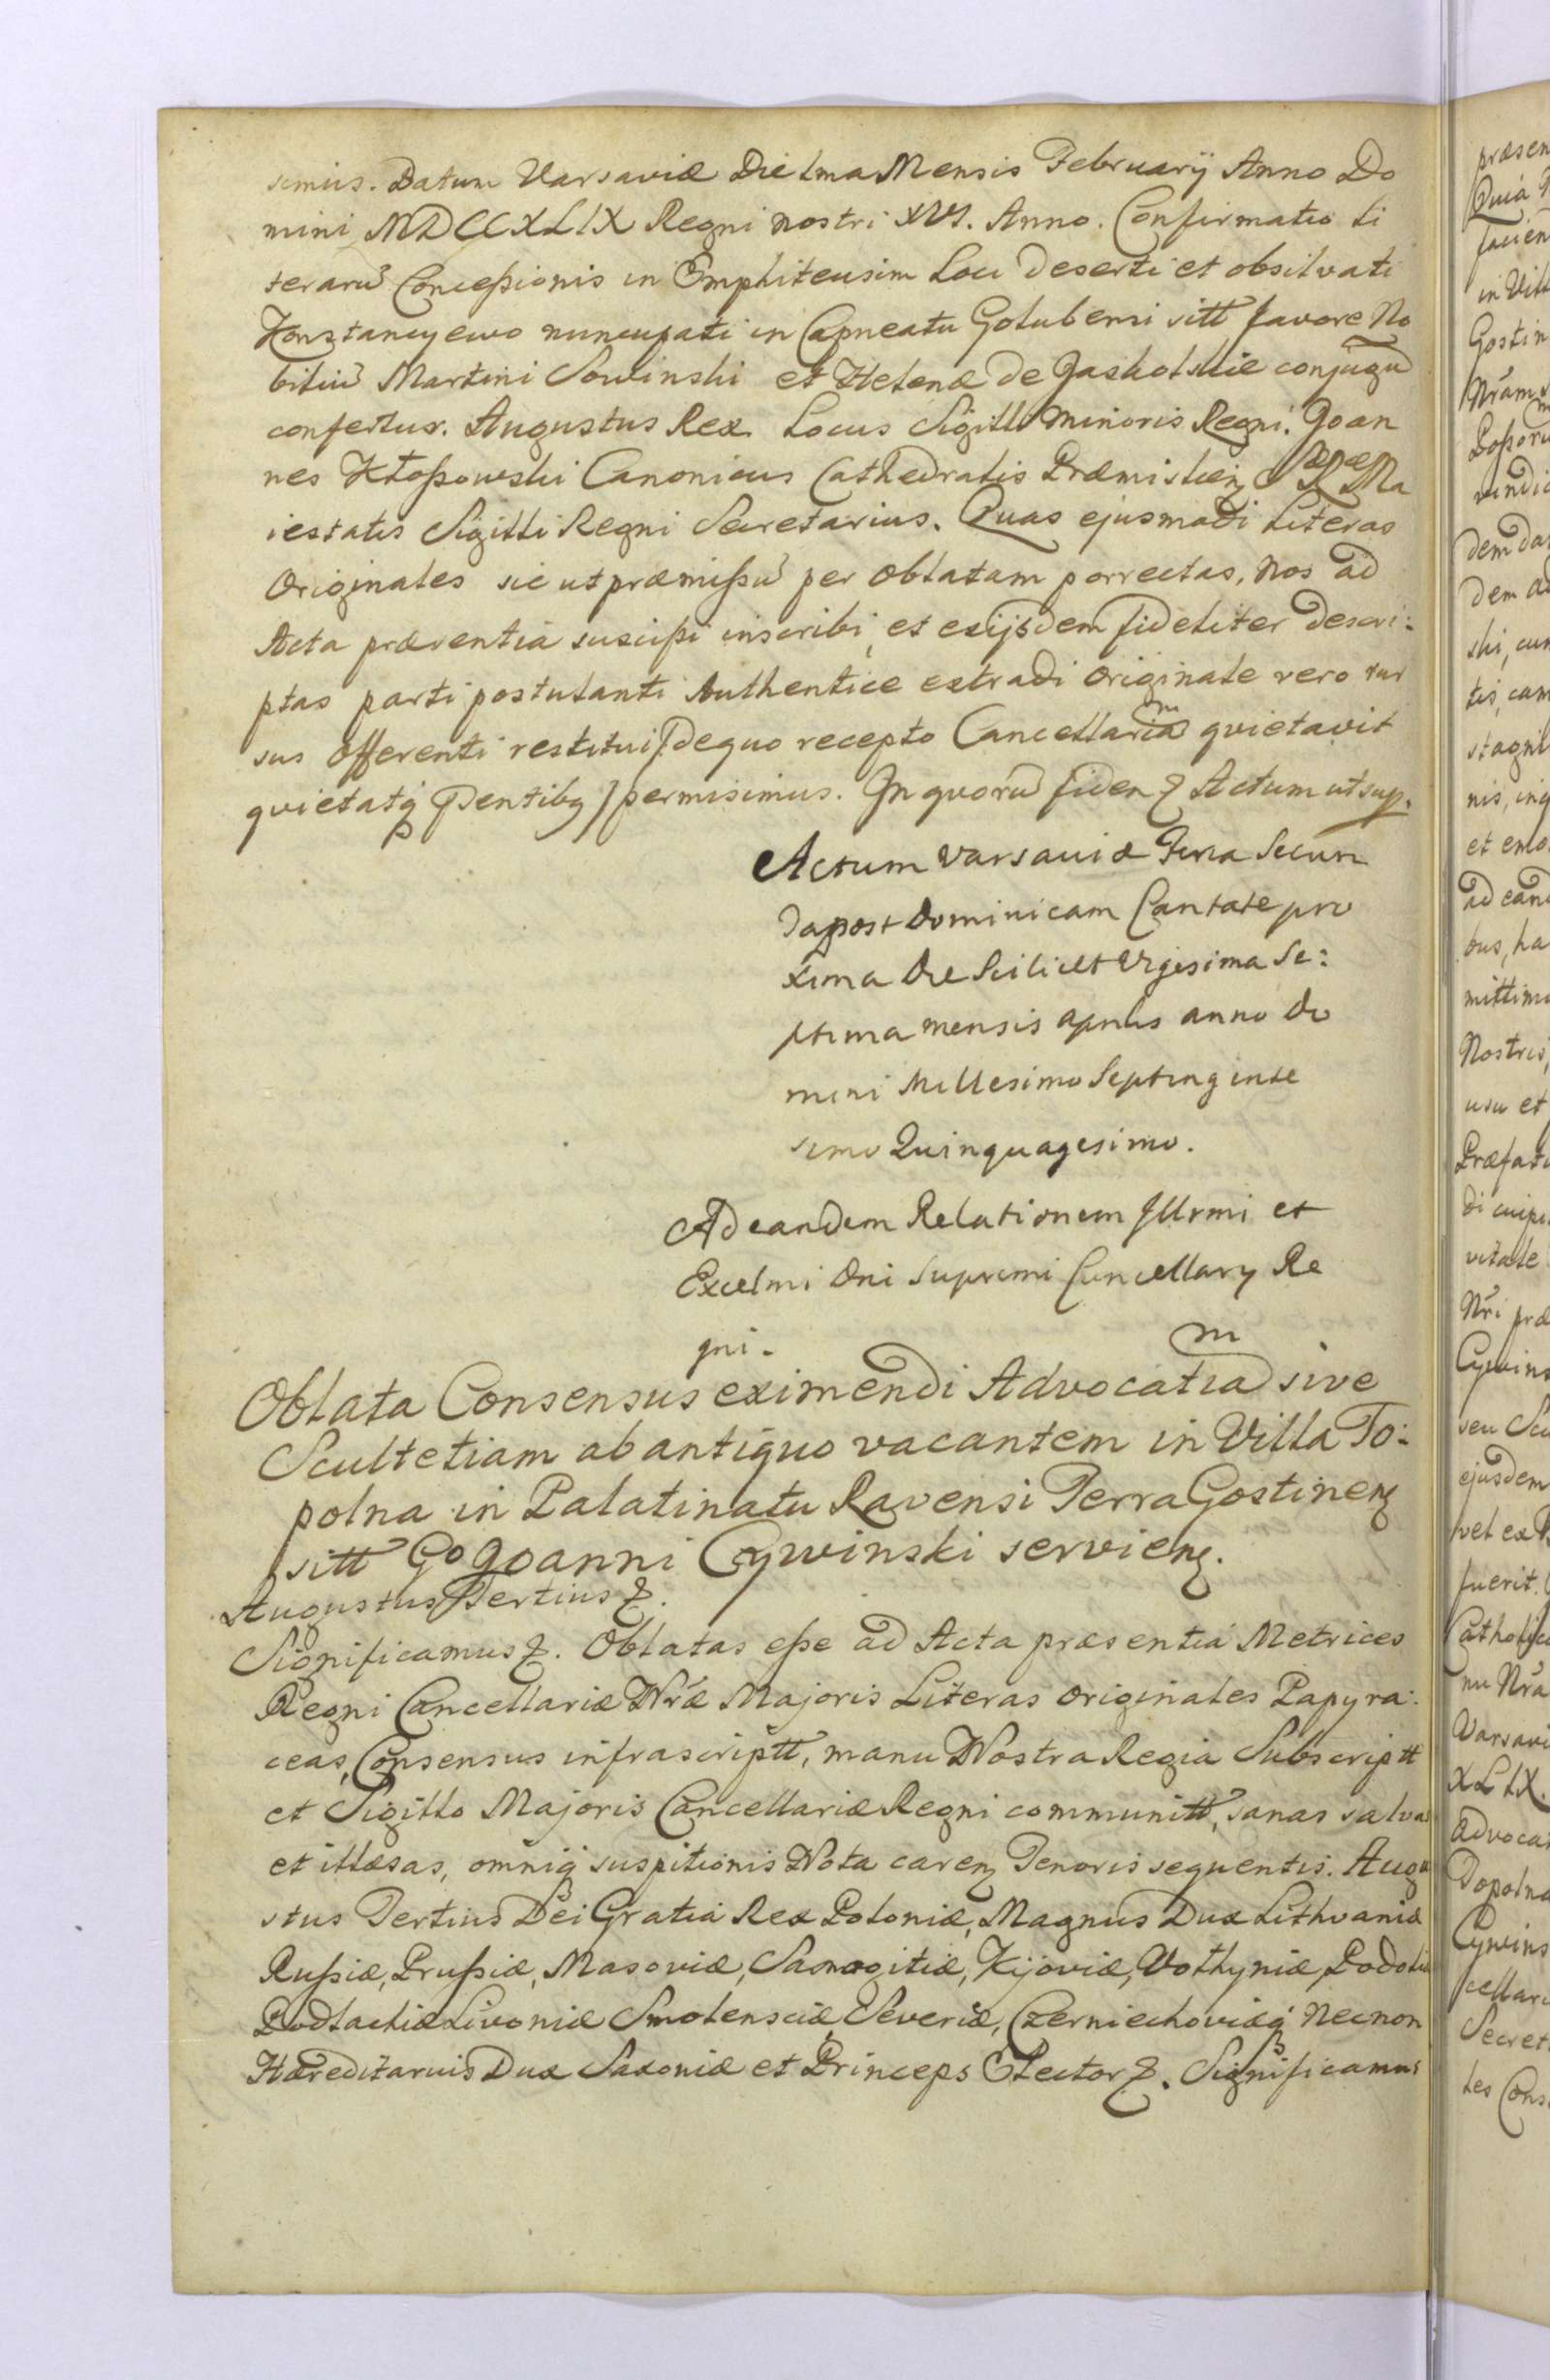 simus. Datum Varsaviæ Die 1ma Mensis Februarÿ Anno Do
mini MDCCXLIX Regni nostri XVI. Anno. Confirmatio Li
terarū Conceßionis in Emphiteusim Loci deserti et obsilvati
Konstancyewo nuncupati in Capneatu Golubensi sitt favore No
biliū Martini Sowinski et Helenæ de Jaskolskie conjugū
confertur. Augustus Rex. Locus Sigilli Minoris Regni. Joan
nes Kłoßowski Canonicus Cathedralis Præmislien Sæ Ræ Ma
iestatis Sigilli Regni Secretarius. Quas ejusmodi Literas
Originales sic ut præmißū per oblatam porrectas, Nos ad
Acta præsentia suscipi inscribi, et exijsdem fideliter descri:
ptas parti postulanti Authentice extradi originale vero rur
sus offerenti restitui /: de quo recepto Cancellariam quietavit
quietatq pntibq / permisimus. In quorū fidem & Actum ut sup.
Actum Varsaviæ Feria Secun
da post Dominicam Cantate pro
xima die Scilicet Vigesima Se:
ptima mensis aprilis anno Do
mini Millesimo Septinginte
simo Quinquagesimo.
Ad eandem Relationem Illrmi et
Excelmi Dni Supremi Cancellary Re
gni.
Oblata Consensus eximendi Advocatiam sive
Scultetiam ab antiquo vacantem in Villa To:
polna in Palatinatu Ravensi Terra Gostinen
sitt Go Joanni Cywinski servien.
Augustus Tertius &.
Significamus &. Oblatas eße ad Acta præsentia Metrices
Regni Cancellariæ Nræ Majoris Literas originales Papyra:
ceas, Consensus infrascriptt, manu Nostra Regia Subscriptt
et Sigillo Majoris Cancellariæ Regni communitt, sanas salvas
et illæsas, omniq suspitionis Nota caren Tenoris sequentis. Augu
stus Tertius Dei Gratia Rex Poloniæ, Magnus Dux Lithvaniæ
Rußiæ, Prußiæ, Masoviæ, Samogitiæ, Kijoviæ, Volhyniæ, Podoliæ
Podlachiæ Livoniæ Smolensciæ, Severiæ, Czerniechoviæq Necnon
Hæreditarius Dux Saxoniæ et Princeps Elector &. Significamus